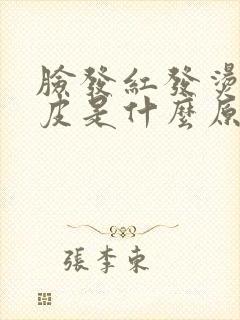 臉發紅發燙
皮是什麼原
張李東